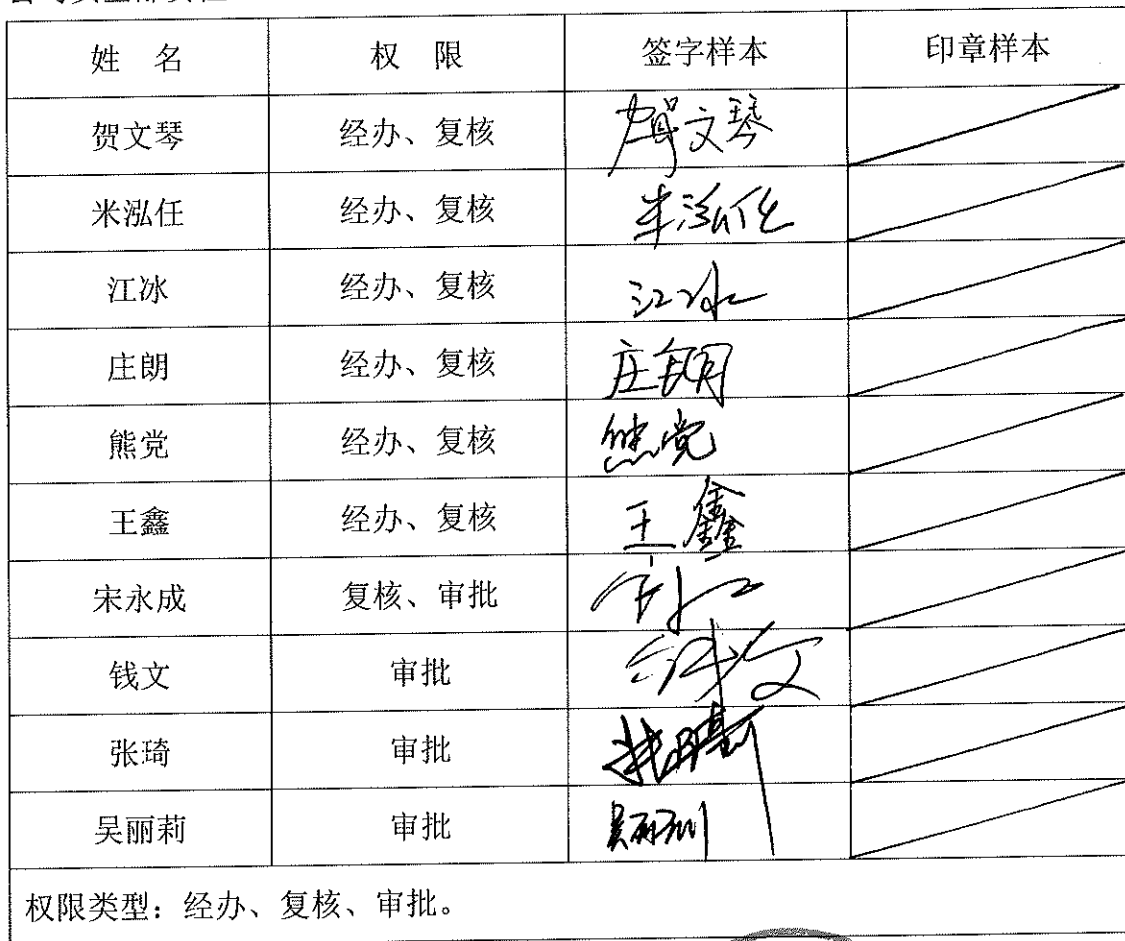 姓 名 权 限 签字样本 印章样本
贺文琴 经办、复核 贺文琴
米泓任 经办、复核 米泓任
江冰 经办、复核 江冰
庄朗 经办、复核 庄朗
熊党 经办、复核 熊党
王鑫 经办、复核 王鑫
宋永成 复核、审批
钱文 审批 钱文
张琦 审批
吴丽莉 审批 吴丽莉
权限类型：经办、复核、审批。